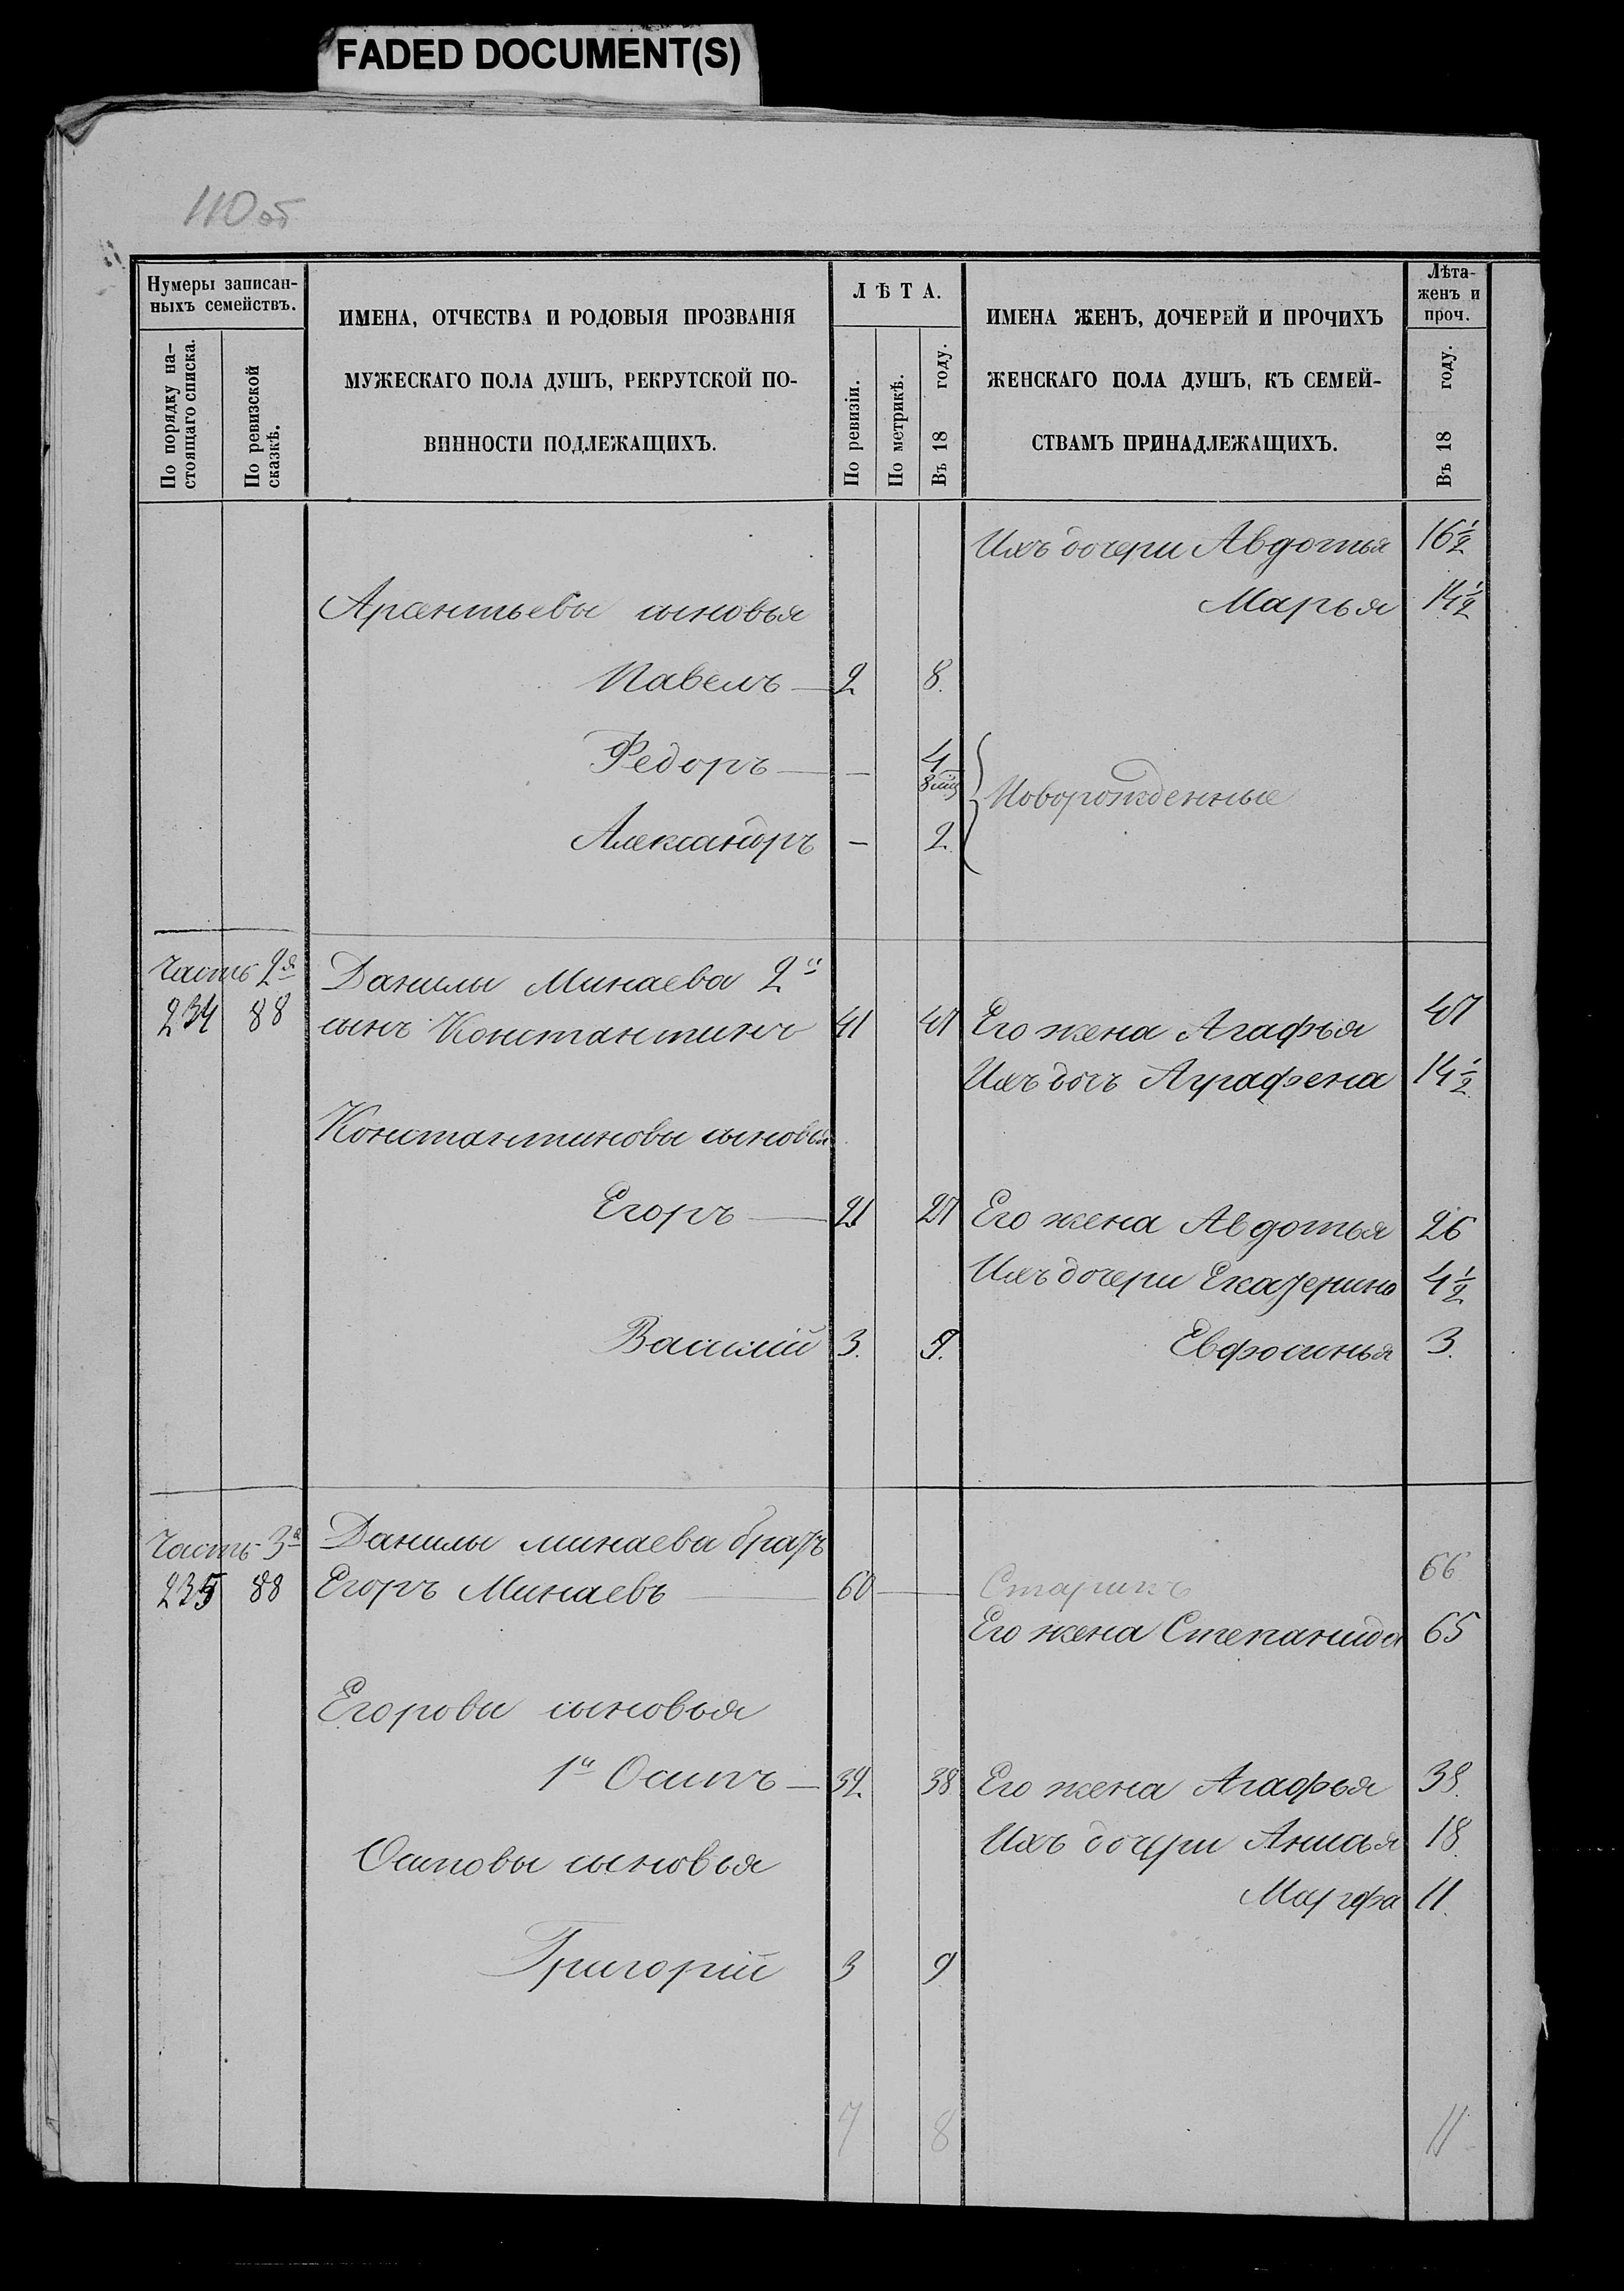 FADED DOCUMENT(S)
110 об
Нумеры записан-
ныхъ семействъ.
По порядку на-
стоящаго списка.
По ревизской
сказкѣ.
ИМЕНА, ОТЧЕСТВА И РОДОВЫЯ ПРОЗВАНІЯ
МУЖЕСКАГО ПОЛА ДУШЪ, РЕКРУТСКОЙ ПО-
ВИННОСТИ ПОДЛЕЖАЩИХЪ.
ЛѢТА.
По ревизіи.
По метрикѣ.
Въ 18 году.
ИМЕНА ЖЕНЪ, ДОЧЕРЕЙ И ПРОЧИХЪ
ЖЕНСКАГО ПОЛА ДУШЪ, КЪ СЕМЕЙ-
СТВАМЪ ПРИНАДЛЕЖАЩИХЪ.
Лѣта-
женъ и
проч.
Въ 18 году.
Ихъ дочери Авдотья 16½
Арсентьевы сыновья Марья 14½
Павелъ — 2 8.
Федоръ — — 4
8 мцъ
Новорожденные
Александръ — 2
Часть 2я Данилы Минаева 2й
234 88 сынъ Константинъ 41 47 Его жена Агафья 47
Ихъ дочь Аграфена 14½
Константиновы сыновья
Егоръ — 21 27 Его жена Авдотья 26
Ихъ дочери Екатерина 4½
Василій 3. 9. Евфосинья 3.
Часть 3я Данилы Минаева братъ
235 88 Егоръ Минаевъ — 60 — Старикъ 66
Его жена Степанида 65
Егоровы сыновья
1й Осипъ — 32 38 Его жена Агафья 38.
Ихъ дочери Анисья 18.
Осиповы сыновья
Марфа 11.
Григорій 3 9
7 8 11